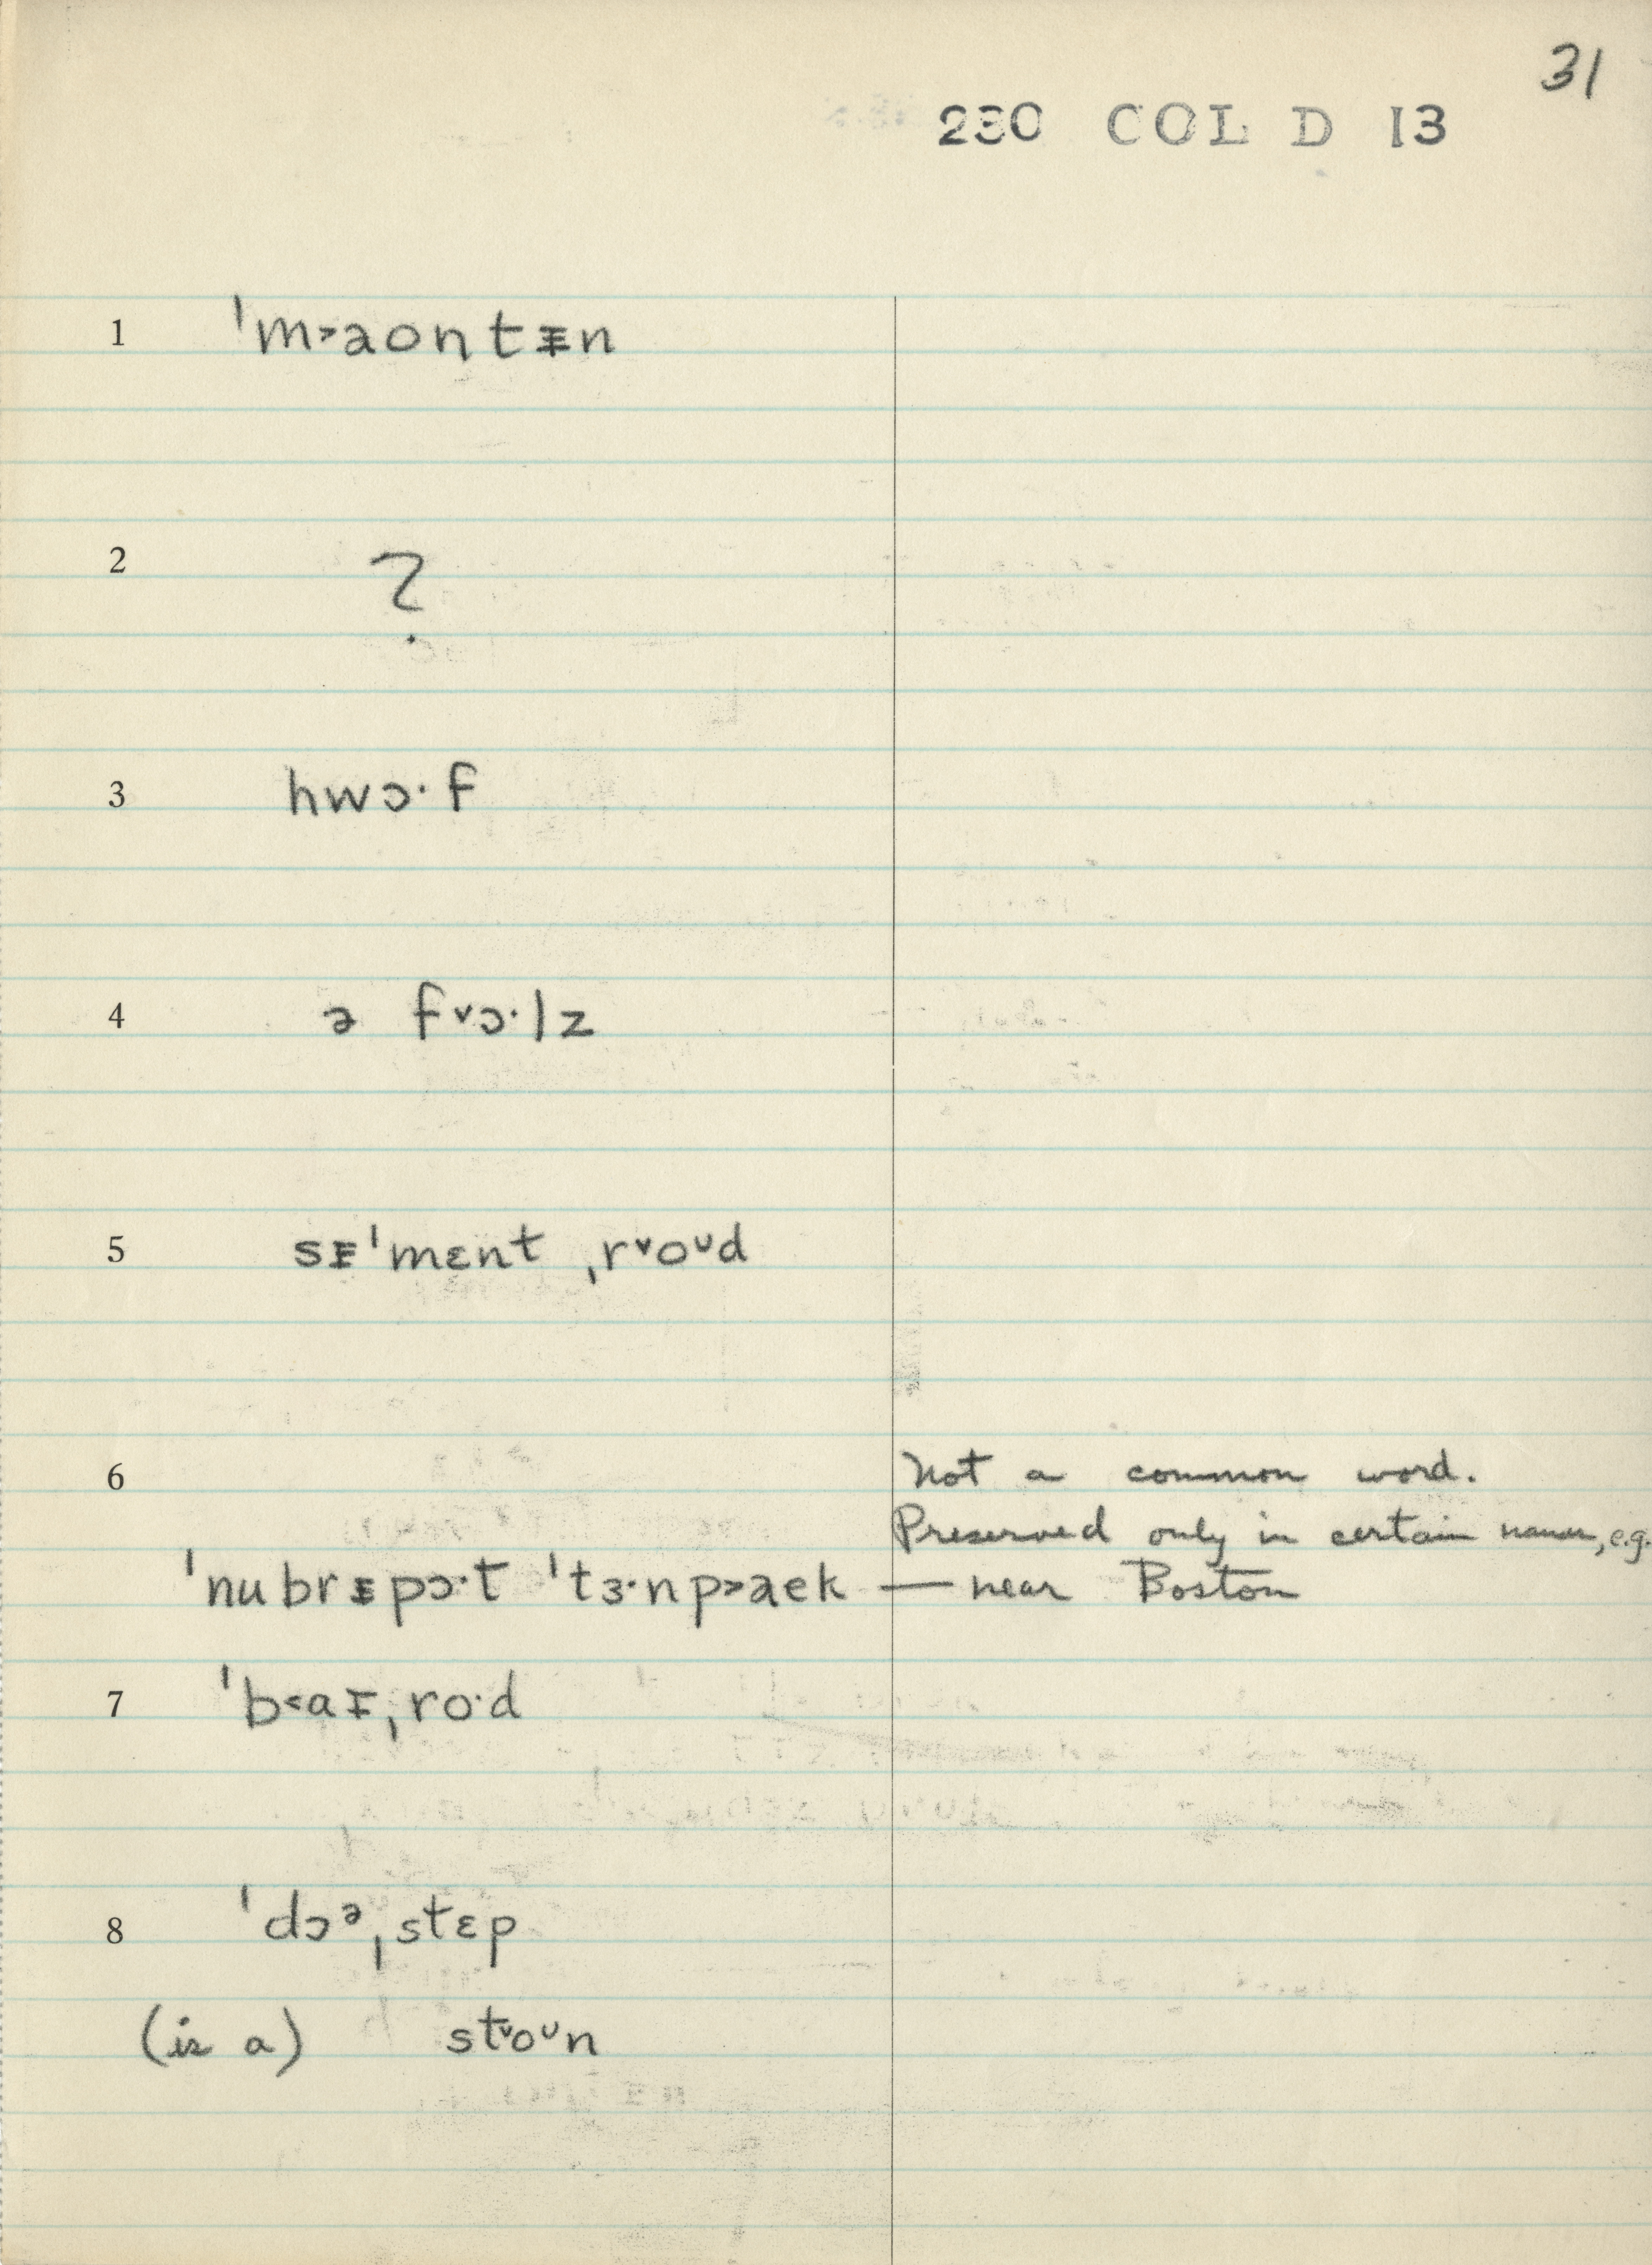 31
230 COL D 13
1 ˈm˃aontᵻn
2 ?
3 hwɔ·f
4 ə f˅ɔ·lz
5 sᵻˈmɛnt ˌr˅oᴜd
6 Not a common word.
Preserved only in certain names, e.g.
ˈnubrᵻpɔ·t ˈtɜ·np˃aek — near Boston
7 ˈb˂aᵻˌro·d
8 ˈdɔᵊˌstɛp
(is a) st˅oᴜn